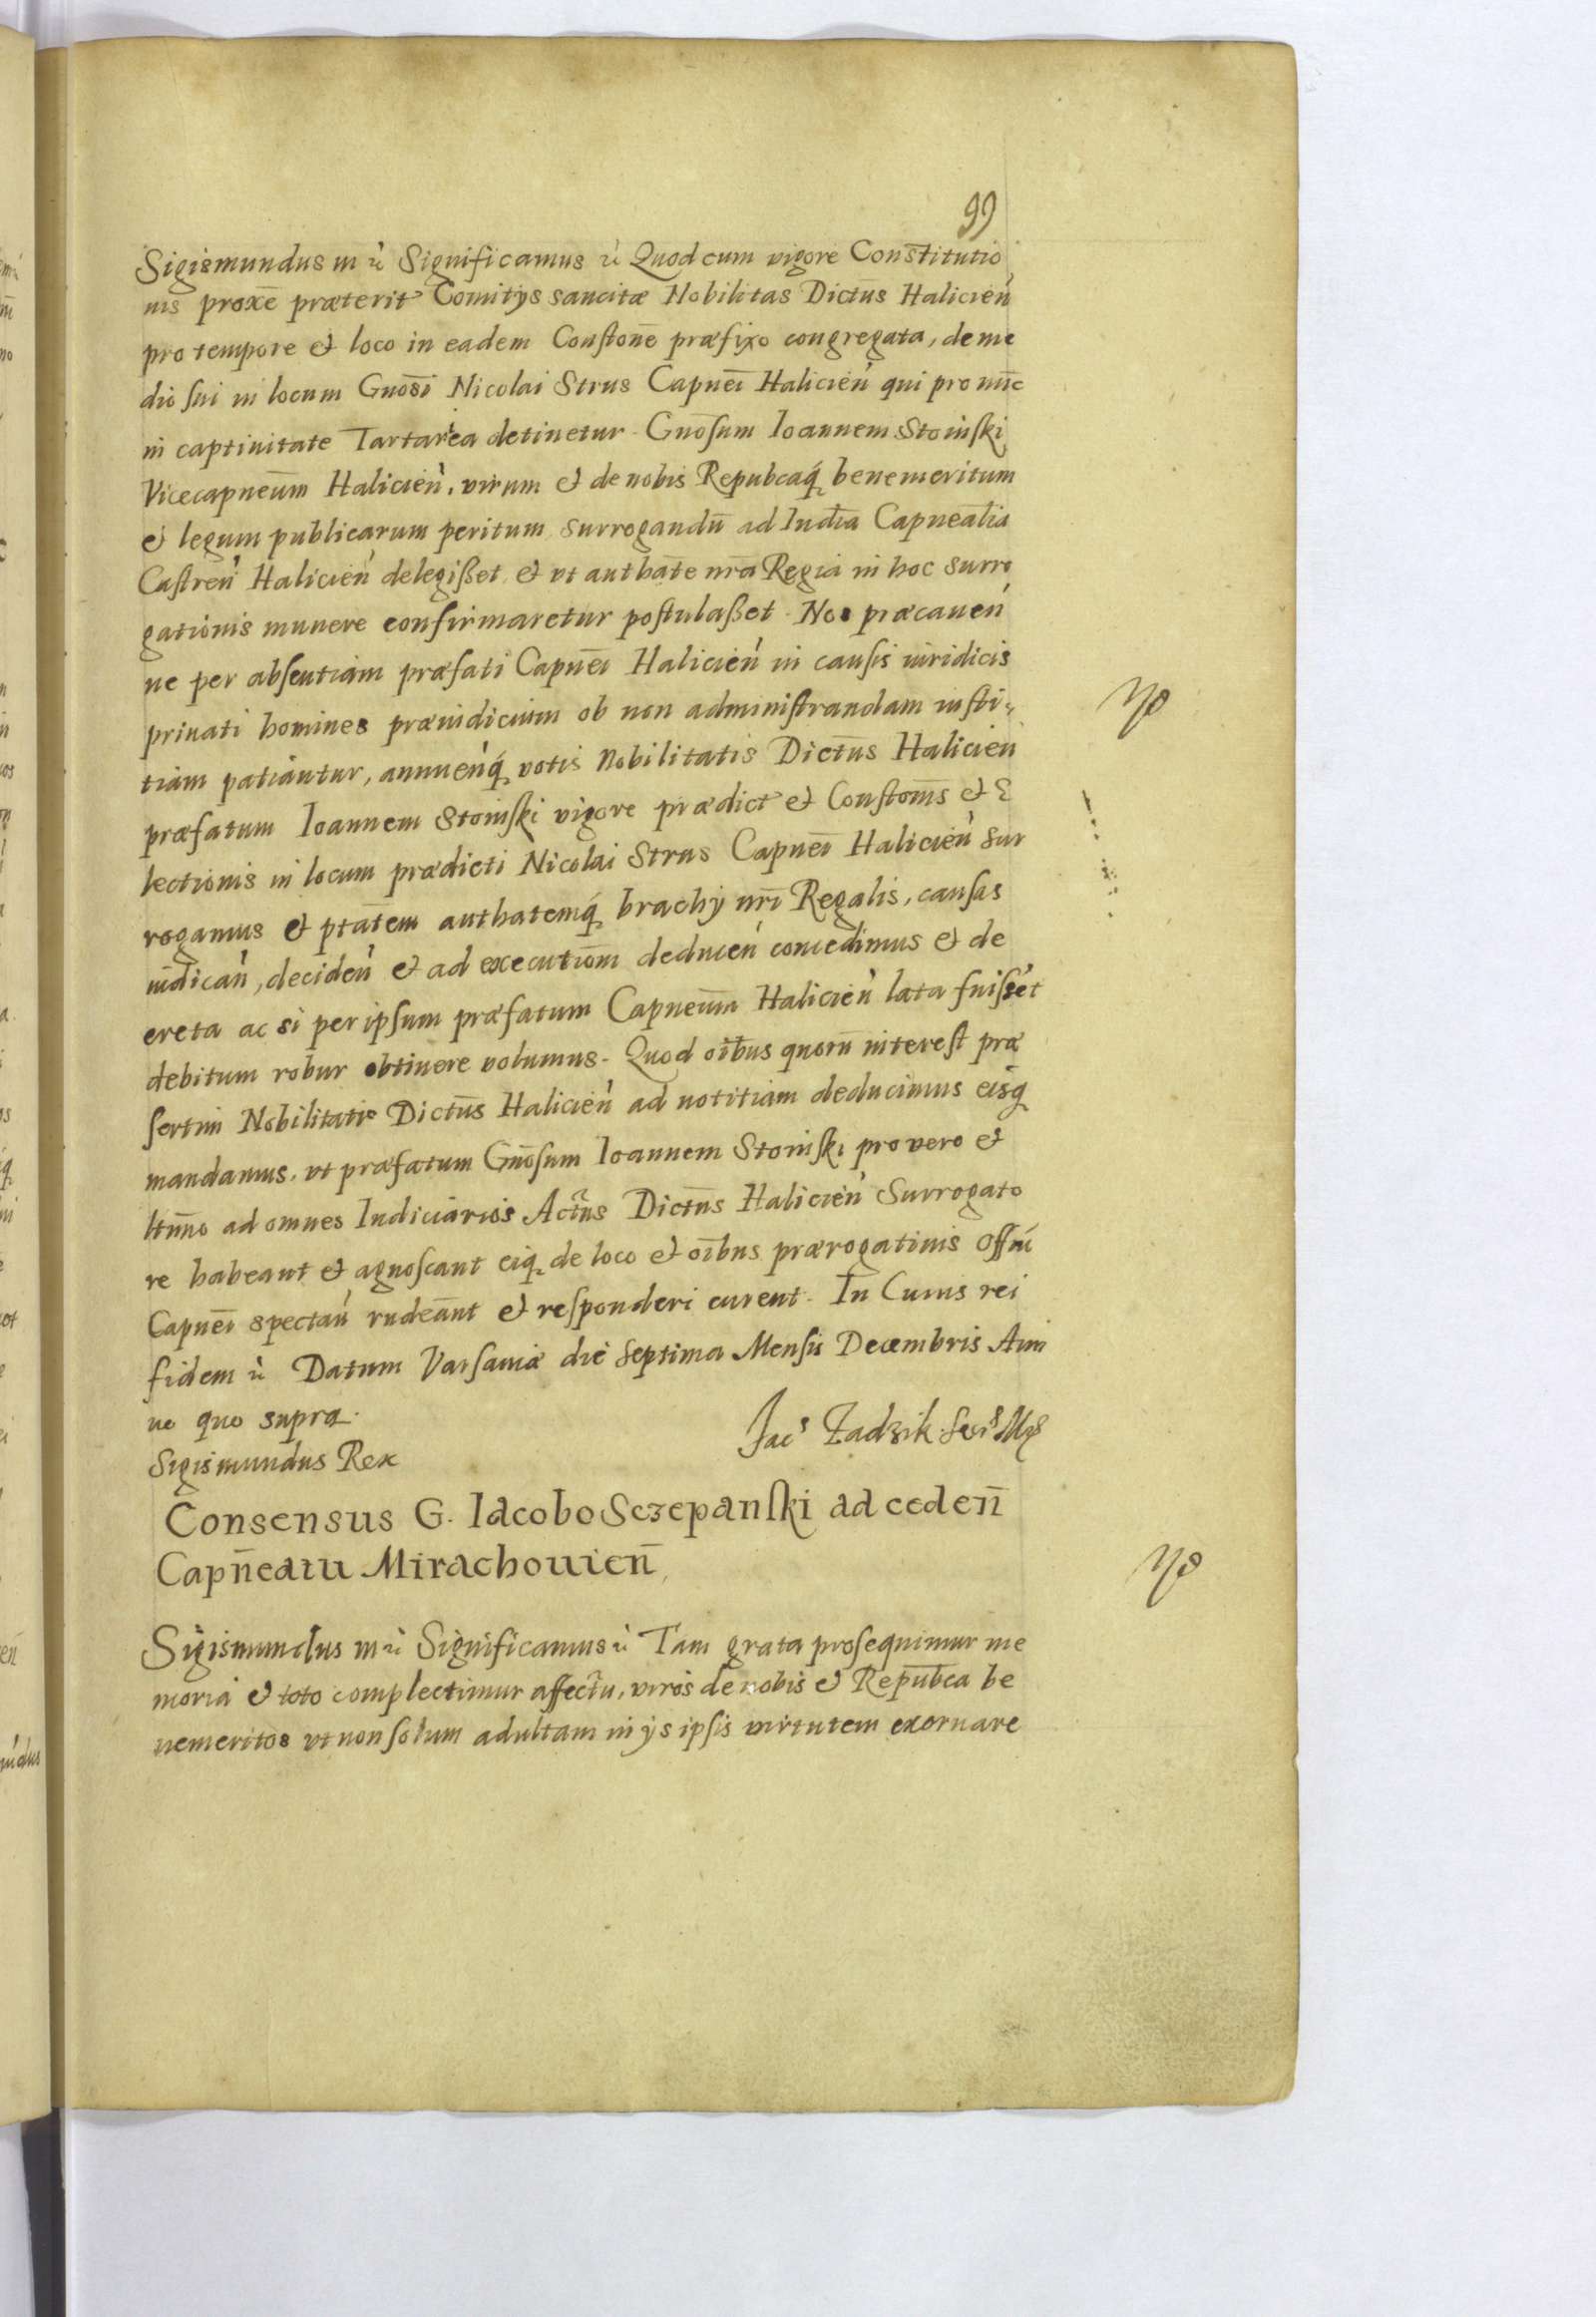 99
Sigismundus III rc Significamus rc Quod cum vigore Constitutio
nis proxe̅ præterit Comitijs sancitæ Nobilitas Dictus Halicien̅
pro tempore et loco in eadem Constone̅ præfixo congregata, de me
dio sui in locum Gnosi̅ Nicolai Strus Capnei̅ Halicien̅ qui pro nu̅c
in captiuitate Tartarea detinetur. Gno̅sum Ioannem Stoinski
Vicecapneu̅m Halicien̅, virum et de nobis Repubcaq́ benemeritum
et legum publicarum peritum surrogandu̅ ad Iudia̅ Capnealia̅
Castren̅ Halicien̅ delegißet et vt authate̅ nra̅ Regia in hoc surro
gationis munere confirmaretur postulaßet. Nos præcauen̅
ne per absentiam præfati Capnei̅ Halicien̅ in causis iuridicis
priuati homines præiudicium ob non administrandam iusti-
tiam patiantur, annuen̅q́ votis Nobilitatis Dictu̅s Halicien
præfatum Ioannem Stoinski vigore prædict et Constoni̅s et E
lectionis in locum prædicti Nicolai Strus Capnei̅ Halicien̅ sur
rogamus et pta̅tem authatemq́ brachij nri̅ Regalis, causas
iudican̅, deciden̅ et ad executio̅m deducen̅ concedimus et de
creta ac si per ipsum præfatum Capneu̅m Halicien̅ lata fuisset
debitum robur obtinere volumus. Quod oib̅us quoru̅ interest præ
sertim Nobilitatis Dictu̅s Halicien̅ ad notitiam deducimus eisq́
mandamus, vt præfatum Gno̅sum Ioannem Stoinski pro vero et
ltmo̅ ad omnes Iudiciarios Actus Dictu̅s Halicien̅ Surrogato
re habeant et agnoscant eiq́ de loco et oi̅bus prærogatiuis Offm̅
Capnei̅ spectan̅ rndea̅nt et responderi curent. In Cuius rei
fidem rc Datum Varsauiæ die septima Mensis Decembris An
no quo supra.
Jacs Zadzik Secrs Mgs
Sigismundus Rex
Consensus G. Iacobo Sczepanski ad ceden̅
Capn̅eatu Mirachouien̅
Sigismundus III rc Significamus rc Tam grata prosequimur me
moria et toto complectimur affectu, viros de nobis et Repub̅ca be
nemeritos vt non solum adultam in ijs ipsis virtutem exornare